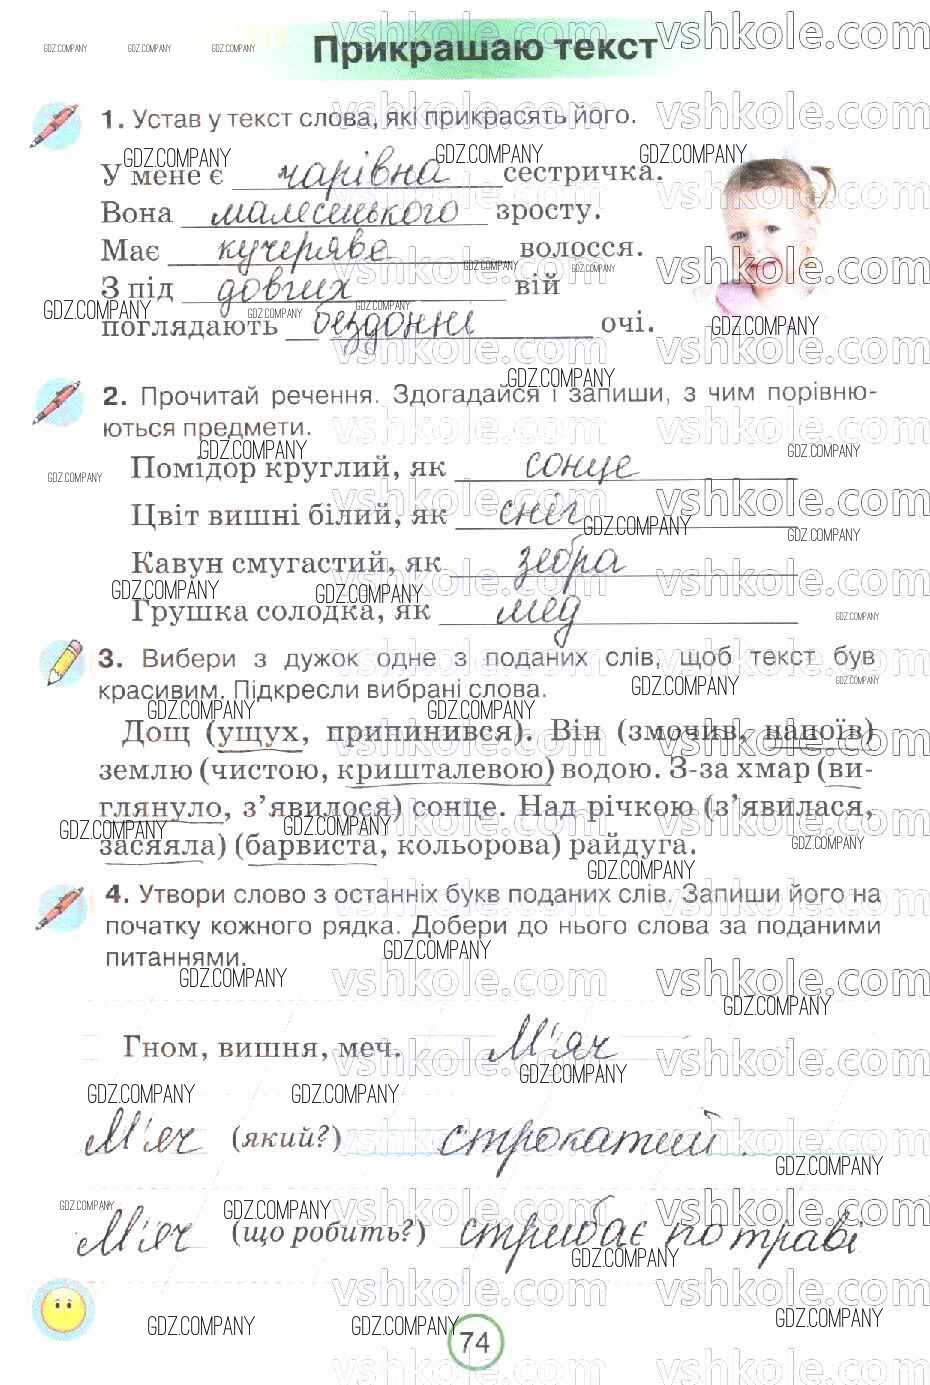 Прикрашаю текст
1. Устав у текст слова, які прикрасять його.
У мене є чарівна сестричка.
Вона малесенького зросту.
Має кучеряве волосся.
З під довгих вій
поглядають бездонні очі.
2. Прочитай речення. Здогадайся і запиши, з чим порівню-
ються предмети.
Помідор круглий, як сонце
Цвіт вишні білий, як сніг
Кавун смугастий, як зебра
Грушка солодка, як мед
3. Вибери з дужок одне з поданих слів, щоб текст був
красивим. Підкресли вибрані слова.
Дощ (ущух, припинився). Він (змочив, напоїв)
землю (чистою, кришталевою) водою. З-за хмар (ви-
глянуло, з’явилося) сонце. Над річкою (з’явилася,
засяяла) (барвиста, кольорова) райдуга.
4. Утвори слово з останніх букв поданих слів. Запиши його на
початку кожного рядка. Добери до нього слова за поданими
питаннями.
Гном, вишня, меч. М'яч
М'яч (який?) строкатий.
М'яч (що робить?) стрибає по траві
74
vshkole.com
GDZ.COMPANY